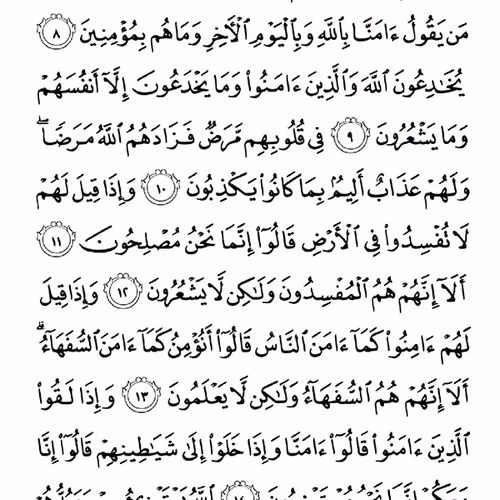 مَن يَقُولُ ءَامَنَّا بِٱللَّهِ وَبِٱلْيَوْمِ ٱلْأَخِرِ وَمَا هُم بِمُؤْمِنِينَ ٨
يُخَٰدِعُونَ ٱللَّهَ وَٱلَّذِينَ ءَامَنُوا۟ وَمَا يَخْدَعُونَ إِلَّآ أَنفُسَهُمْ
وَمَا يَشْعُرُونَ ٩ فِى قُلُوبِهِم مَّرَضٌ فَزَادَهُمُ ٱللَّهُ مَرَضًا ۖ
وَلَهُمْ عَذَابٌ أَلِيمٌۢ بِمَا كَانُوا۟ يَكْذِبُونَ ١٠ وَإِذَا قِيلَ لَهُمْ
لَا تُفْسِدُوا۟ فِى ٱلْأَرْضِ قَالُوٓا۟ إِنَّمَا نَحْنُ مُصْلِحُونَ ١١
أَلَآ إِنَّهُمْ هُمُ ٱلْمُفْسِدُونَ وَلَٰكِن لَّا يَشْعُرُونَ ١٢ وَإِذَا قِيلَ
لَهُمْ ءَامِنُوا۟ كَمَآ ءَامَنَ ٱلنَّاسُ قَالُوٓا۟ أَنُؤْمِنُ كَمَآ ءَامَنَ ٱلسُّفَهَآءُ ۗ
أَلَآ إِنَّهُمْ هُمُ ٱلسُّفَهَآءُ وَلَٰكِن لَّا يَعْلَمُونَ ١٣ وَإِذَا لَقُوا۟
ٱلَّذِينَ ءَامَنُوا۟ قَالُوٓا۟ ءَامَنَّا وَإِذَا خَلَوْا۟ إِلَىٰ شَيَٰطِينِهِمْ قَالُوٓا۟ إِنَّا